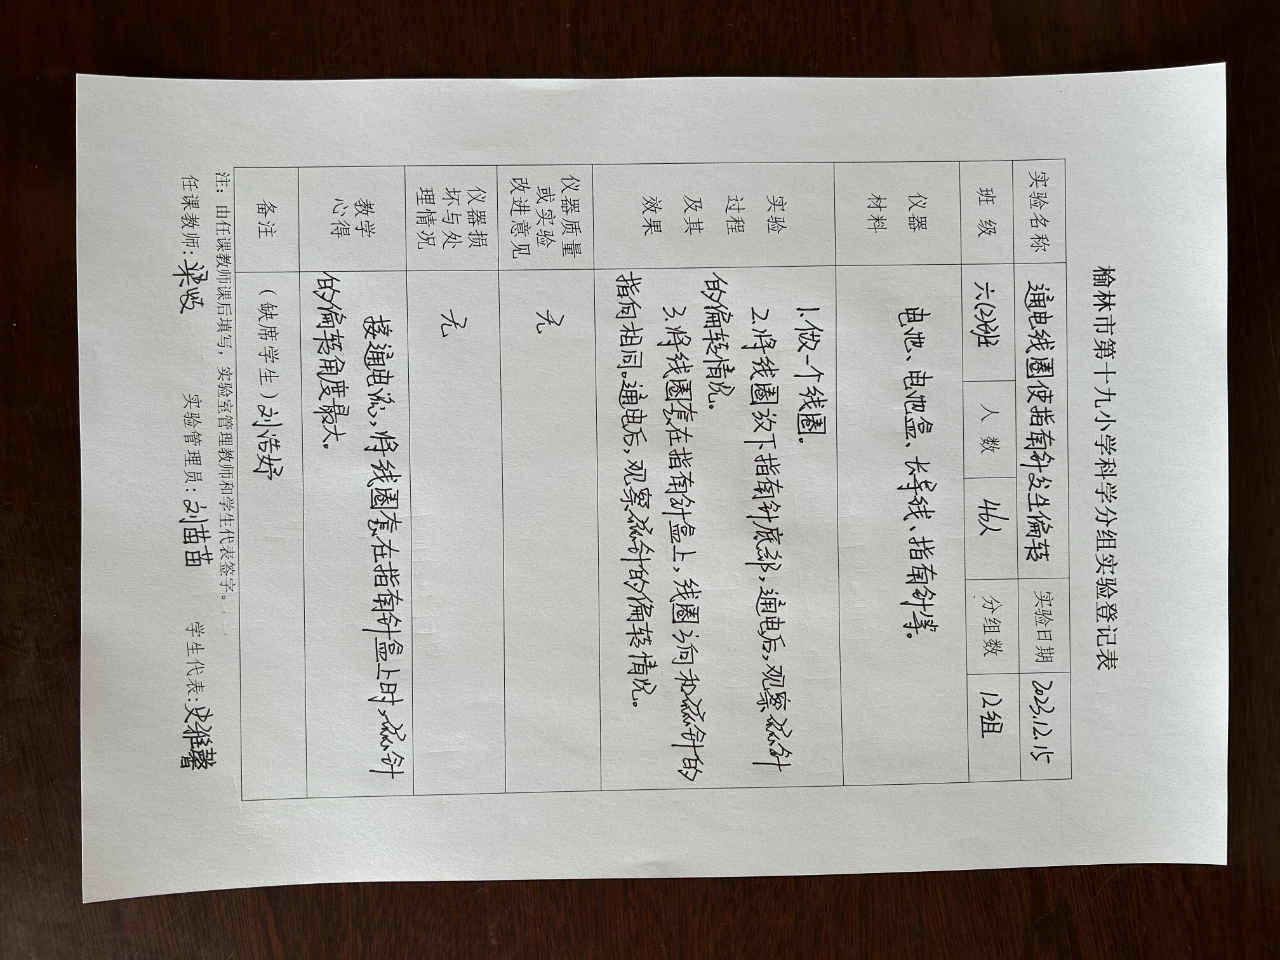 榆林市第十九小学科学分组实验登记表
实验名称 通电线圈使指南针发生偏转 实验日期 2023.12.15
班 级 六(2)班 人 数 46人 分组数 12组
仪器
材料
电池、电池盒、长导线、指南针等。
实验
过程
及其
效果
1.做一个线圈。
2.将线圈放下指南针底部,通电后,观察磁针
的偏转情况。
3.将线圈套在指南针盒上,线圈方向和磁针的
指向相同。通电后,观察磁针的偏转情况。
仪器质量
或实验
改进意见
无
仪器损
坏与处
理情况
无
教学
心得
接通电流,将线圈套在指南针盒上时,磁针
的偏转角度最大。
备注 (缺席学生)刘浩妤
注:由任课教师课后填写,实验室管理教师和学生代表签字。
任课教师: 梁 实验管理员: 刘苗苗 学生代表: 史雅馨